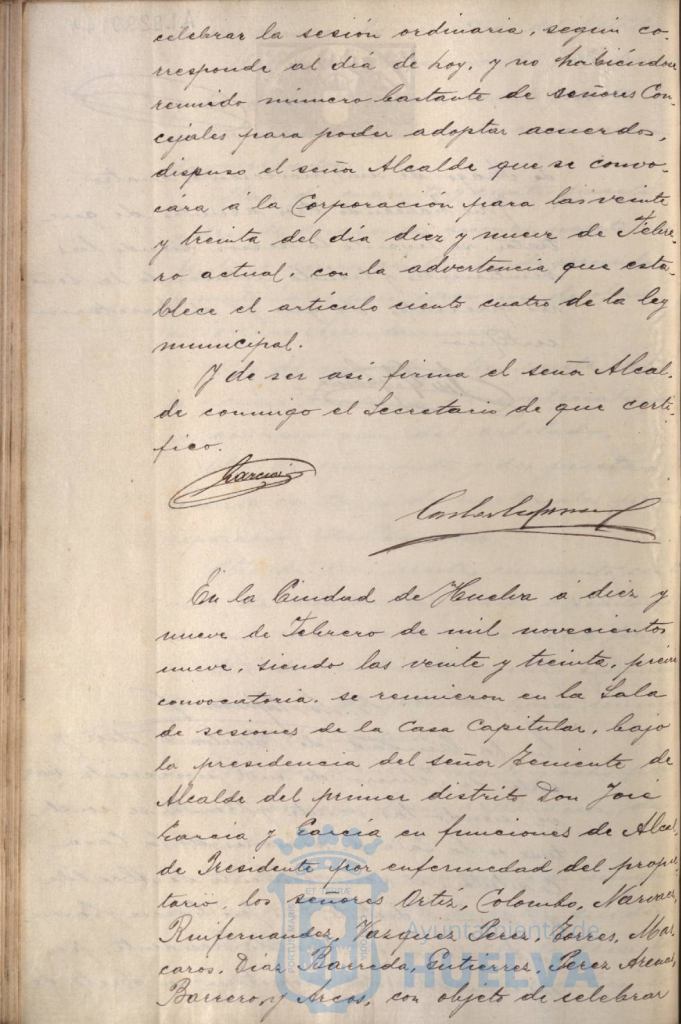 celebrar la sesión ordinaria, según co-
rresponde al día de hoy, y no habiéndose
reunido número bastante de señores Con-
cejales para poder adoptar acuerdos,
dispuso el señor Alcalde que se convo-
cára á la Corporación para las veinte
y treinta del día diez y nueve de Febre-
ro actual, con la advertencia que esta-
blece el artículo ciento cuatro de la ley
municipal.
Y de ser así, firma el señor Alcal-
de conmigo el Secretario de que certi-
fico.
García
En la Ciudad de Huelva á diez y
nueve de Febrero de mil novecientos
nueve, siendo las veinte y treinta, previa
convocatoria, se reunieron en la Sala
de sesiones de la Casa Capitular, bajo
la presidencia del señor Teniente de
Alcalde del primer distrito Don José
García y García en funciones de Alcal-
de Presidente por enfermedad del propie-
tario, los señores Ortiz, Colombo, Narvaez,
Ruifernandez, Vazquez Perez, Torres, Mas-
caros, Diaz Barreda, Gutierrez, Perez
Barrero, y Arcos, con objeto de celebrar
Ayuntamiento de
HUELVA